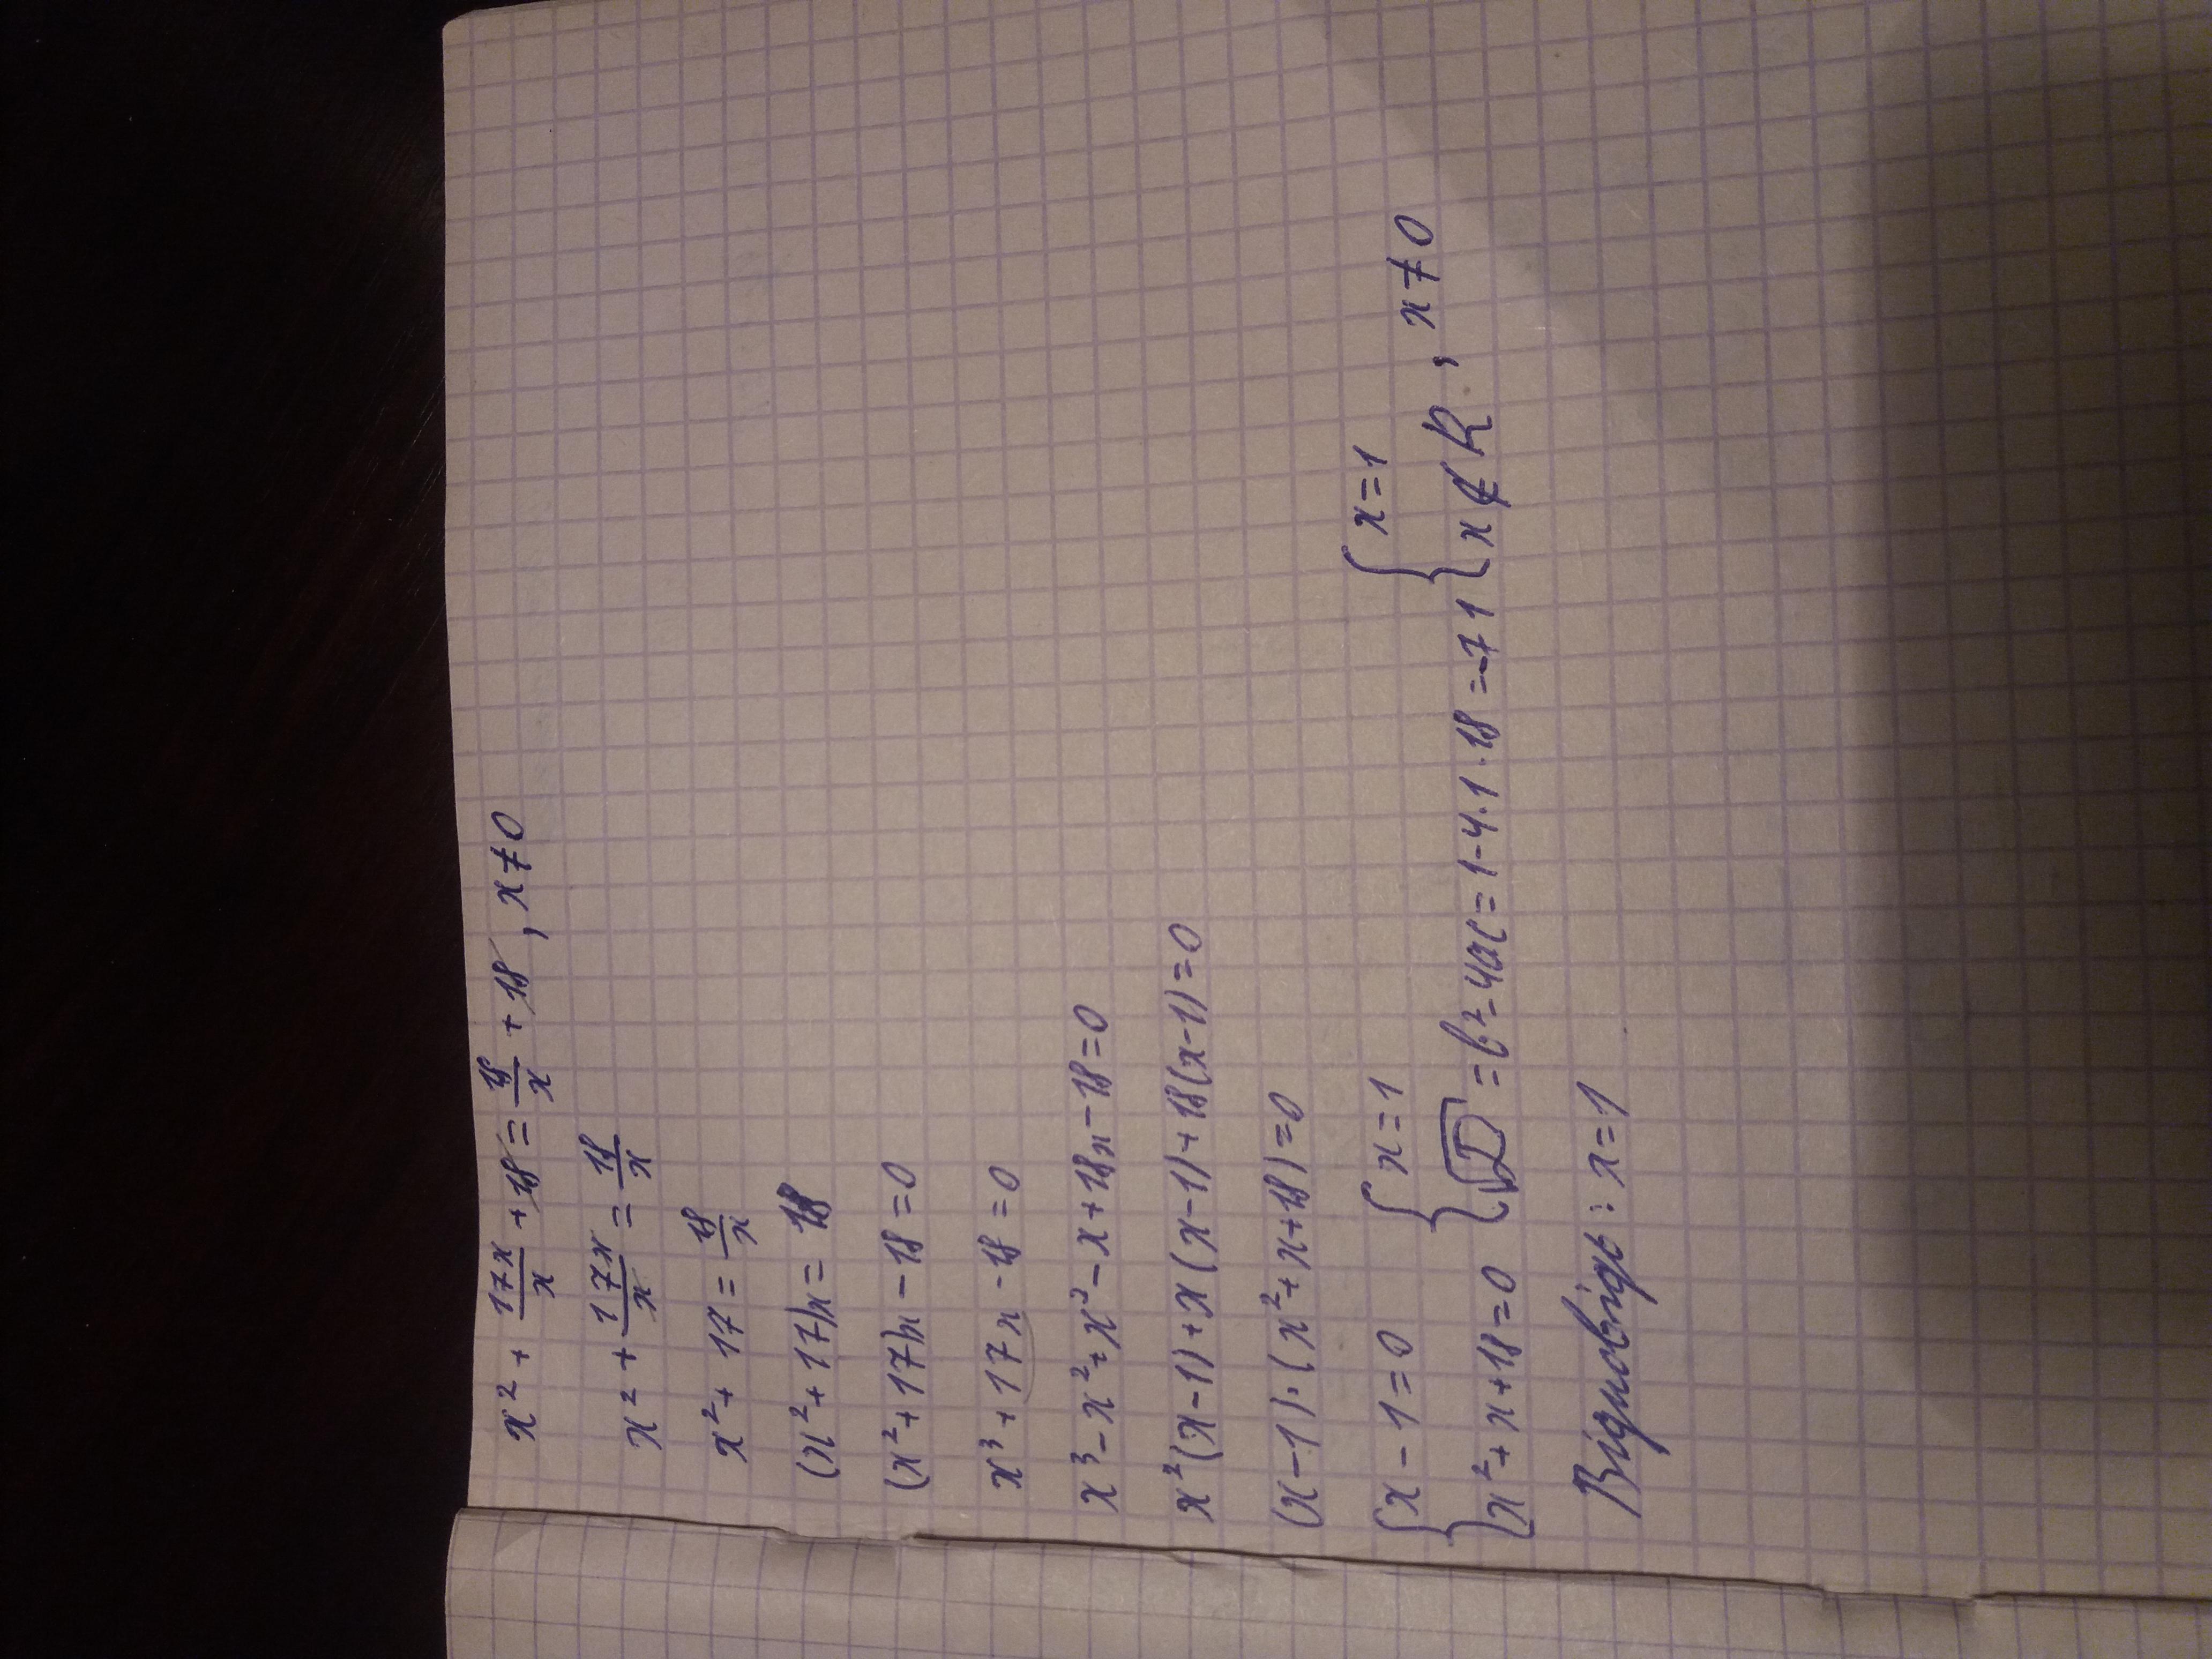 x² + 17x/x + 18 = 18/x + 18, x ≠ 0
x² + 17x/x = 18/x
x² + 17 = 18/x
(x² + 17)x = 18
(x² + 17)x - 18 = 0
x³ + 17x - 18 = 0
x³ - x² + x² - x + 18x - 18 = 0
x²(x - 1) + x(x - 1) + 18(x - 1) = 0
(x - 1) · (x² + x + 18) = 0
{ x - 1 = 0 { x = 1 { x = 1
x² + x + 18 = 0 √D = b² - 4ac = 1 - 4 · 1 · 18 = -71 x ∉ R , x ≠ 0
Відповідь: x = 1